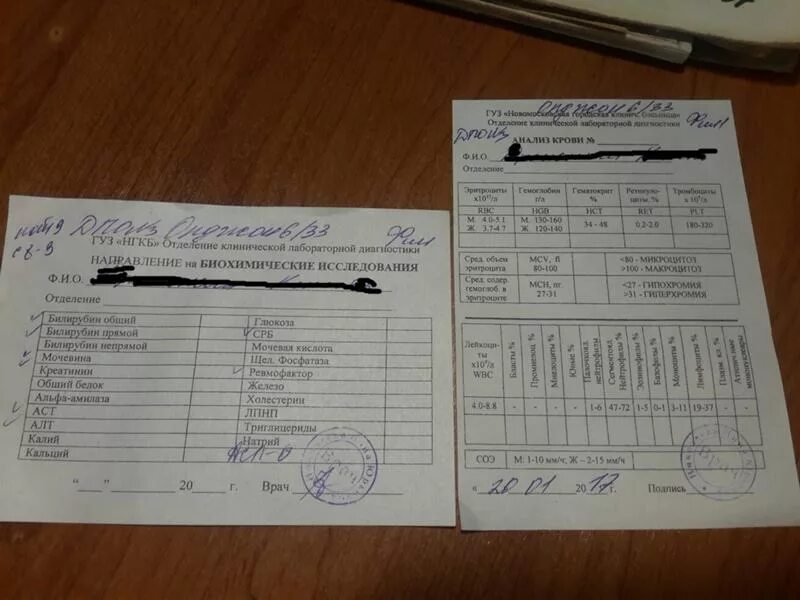 ГУЗ «НГКБ» Отделение клинической лабораторной диагностики
НАПРАВЛЕНИЕ на БИОХИМИЧЕСКИЕ ИССЛЕДОВАНИЯ
Ф.И.О.
Отделение
Билирубин общий Глюкоза
Билирубин прямой СРБ
Билирубин непрямой Мочевая кислота
Мочевина Щел. Фосфатаза
Креатинин Ревмофактор
Общий белок Железо
Альфа-амилаза Холестерин
АСТ ЛПНП
АЛТ Триглицериды
Калий Натрий
Кальций
"__" 20 г. Врач
6/33
ГУЗ «Новомосковская городская клинич. больница»
Отделение клинической лабораторной диагностики
АНАЛИЗ КРОВИ №
Ф.И.О.
Отделение
Эритроциты х10¹²/л Гемоглобин г/л Гематокрит % Ретикулоциты. % Тромбоциты х 10⁹/л
RBC HGB HCT RET PLT
М. 4.0-5.1 М. 130-160 34 - 48 0.2-2.0 180-320
Ж. 3.7-4.7 Ж. 120-140
Сред. объем эритроцита MCV, fl 80-100 <80 - МИКРОЦИТОЗ
>100 - МАКРОЦИТОЗ
Сред. содер. гемоглоб. в эритроците MCH, пг 27-31 <27 - ГИПОХРОМИЯ
>31 - ГИПЕРХРОМИЯ
Лейкоциты х10⁹/л WBC Бласты % Промиелоц % Миелоциты % Юные % Палочкояд. нейтрофилы Сегментояд. Нейтрофилы % Эозинофилы % Базофилы % Моноциты % Лимфоциты % Плазм. кл % Атипичные мононуклеары
4.0-8.8 - - - - 1-6 47-72 1-5 0-1 3-11 19-37 - -
СОЭ М: 1-10 мм/ч; Ж – 2-15 мм/ч
« 20 01 2017г. Подпись